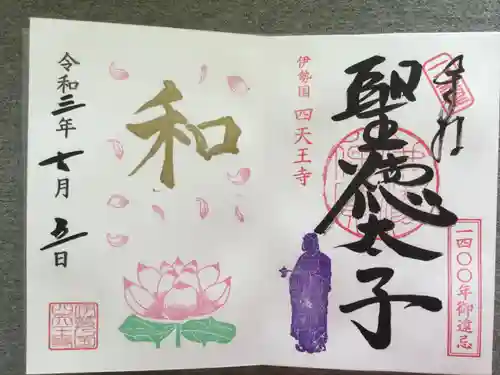 奉拝
聖徳太子
一四〇〇年御遠忌
伊勢国 四天王寺
和
令和三年七月五日